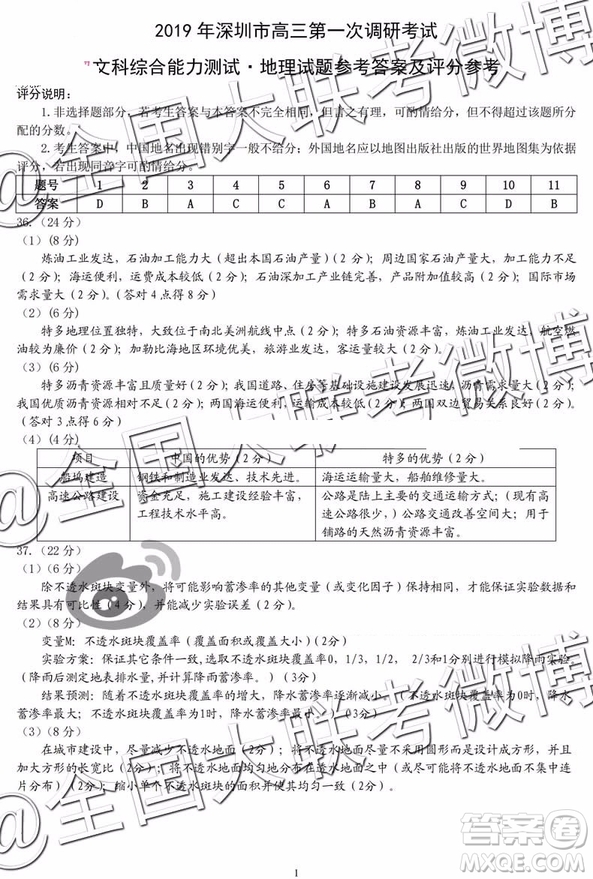 2019 年深圳市高三第一次调研考试
文科综合能力测试·地理试题参考答案及评分参考
评分说明：
1. 非选择题部分，若考生答案与本答案不完全相同，但言之有理，可酌情给分，但不得超过该题所分
配的分数。
2. 考生答案中，中国地名出现错别字一般不给分；外国地名应以地图出版社出版的世界地图集为依据
评分，若出现同音字可酌情给分。
题号 1 2 3 4 5 6 7 8 9 10 11
答案 D B A C C C A B A D B
36.（24 分）
（1）（8 分）
炼油工业发达，石油加工能力大（超出本国石油产量）（2 分）；周边国家石油产量大，加工能力不足
（2 分）；海运便利，运费成本较低（2 分）；石油深加工产业链完善，产品附加值较高（2 分）；国际市场
需求量大（2 分）。（答对 4 点得 8 分）
（2）（6 分）
特多地理位置独特，大致位于南北美洲航线中点（2 分）；特多石油资源丰富，炼油工业发达，航空燃
油油较为廉价（2 分）；加勒比海地区环境优美，旅游业发达，客运量较大（2 分）。
（3）（6 分）
特多沥青资源丰富且质量好（2 分）；我国道路、住房等基础设施建设发展迅速，沥青需求量大（2 分）；
我国优质沥青列缺（2 分）；两国海运便利，运输成本较低（2 分）；两国双边贸易关系良好（2 分）。
（答对 3 点得 6 分）
（4）（4 分）
项目 中国的优势（2 分） 特多的优势（2 分）
船坞建造 钢铁和制造业发达，技术先进。 海运运输量大，船舶维修量大。
高速公路建设 资金充足，施工建设经验丰富，
工程技术水平高。 公路是陆上主要的交通运输方式；（现有高
速公路少，）公路交通改善空间大；用于
铺路的天然沥青资源丰富。
37.（22 分）
（1）（6 分）
除不透水斑块变量外，将可能影响蓄渗率的其他变量（或干扰因子）保持相同，才能保证实验数据和
结果具有可比性（4 分），并能减少实验误差（2 分）。
（2）（8 分）
变量M：不透水斑块覆盖率（覆盖面积或覆盖大小）（2分）
实验方案：保证其它条件一致，选取不透水斑块覆盖率0，1/3，1/2， 2/3和1分别进行模拟降雨实验。
（降雨后测定地表排水量，并计算降雨蓄渗率。）（3分）
结果预测：随着不透水斑块覆盖率的增大，降水蓄渗率逐渐减小。（不透水斑块覆盖率为0时，降水
蓄渗率最大；不透水斑块覆盖率为1时，降水蓄渗率最小。）（3分）
（3）（8 分）
在城市建设中，尽量减少不透水地面（2 分）；尽量将不透水地面布局在透水地面之上（2 分），并且
加大方形的长宽比（2 分）；尽可能将不透水地面均匀地分布在透水地面或尽可能使不透水地面不集中连
片分布）（2分）；缩小单个不透水斑块的面积（2 分）。
1
@全国大联考微博
@全国大联考微博
答案圈
MXQE.COM